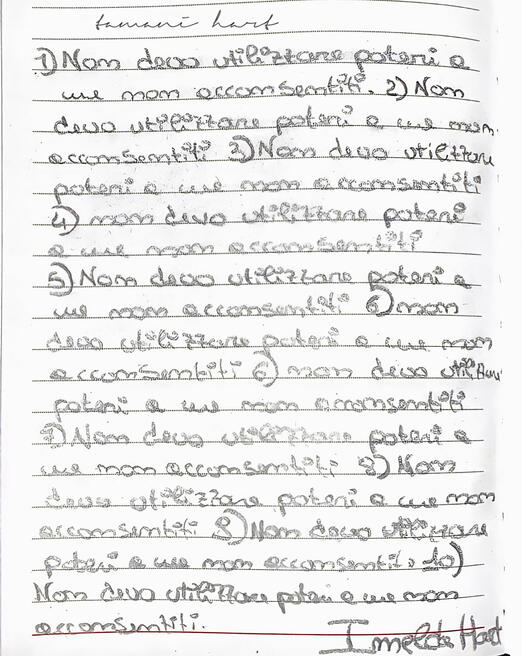 tamani hart
1) Non devo utilizzare poteri a
me non acconsentiti. 2) Non
devo utilizzare poteri a me non
acconsentiti 3) Non devo utilizzare
poteri a me non acconsentiti
4) non devo utilizzare poteri
a me non acconsentiti
5) Non devo utilizzare poteri a
me non acconsentiti 6) non
devo utilizzare poteri a me non
acconsentiti 6) non devo utilizzare
poteri a me non acconsentiti
7) Non devo utilizzare poteri a
me non acconsentiti 8) Non
devo utilizzare poteri a me non
acconsentiti 9) Non devo utilizzare
poteri a me non acconsentiti 10)
Non devo utilizzare poteri a me non
acconsentiti.
Imelda Hart